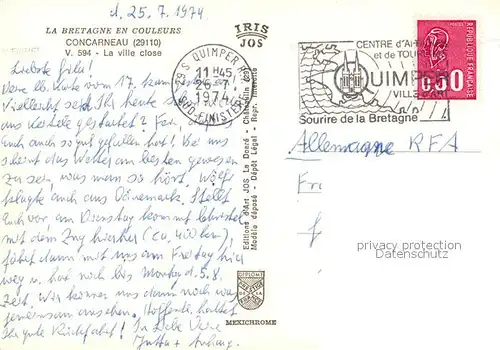 d. 25.7.1974
LA BRETAGNE EN COULEURS
CONCARNEAU (29110)
V. 594 - La ville close
Liebste Gila!
Eure lb. Karte vom 17. kam
Vielleicht seid Ihr schon
aus gestartet?
Euch auch so gut gefallen hat! Bei uns
scheint das Wetter am besten gewesen
zu sein, was man so hört. Wölf
klagte auch aus Dänemark. Stellt
Euch vor, am Dienstag kommt Christel
mit dem Zug hierher (ca. 400 km),
fährt dann mit uns am Freitag hier
weg u. hat noch bis Montag d. 5.8.
Zeit. Wir können uns dann noch
gemeinsam ansehen. Hoffentl. hattet
Ihr gute Rückfahrt! In Liebe Eure
Jutta + Anhang.
IRIS
JOS
29 S QUIMPER
11H45
26 - 7
1974
SUD FINISTERE
Editions d'Art JOS Le Doaré - Châteaulin (29)
Modèle déposé - Dépôt Légal - Repr. Interdite
DIPLOME
MEXICHROME
CENTRE d'ART
et de TOURISME
QUIMPER
VILLE D'ART
Sourire de la Bretagne
REPUBLIQUE FRANCAISE
0,50
Allemagne RFA
Fr
privacy protection
Datenschutz